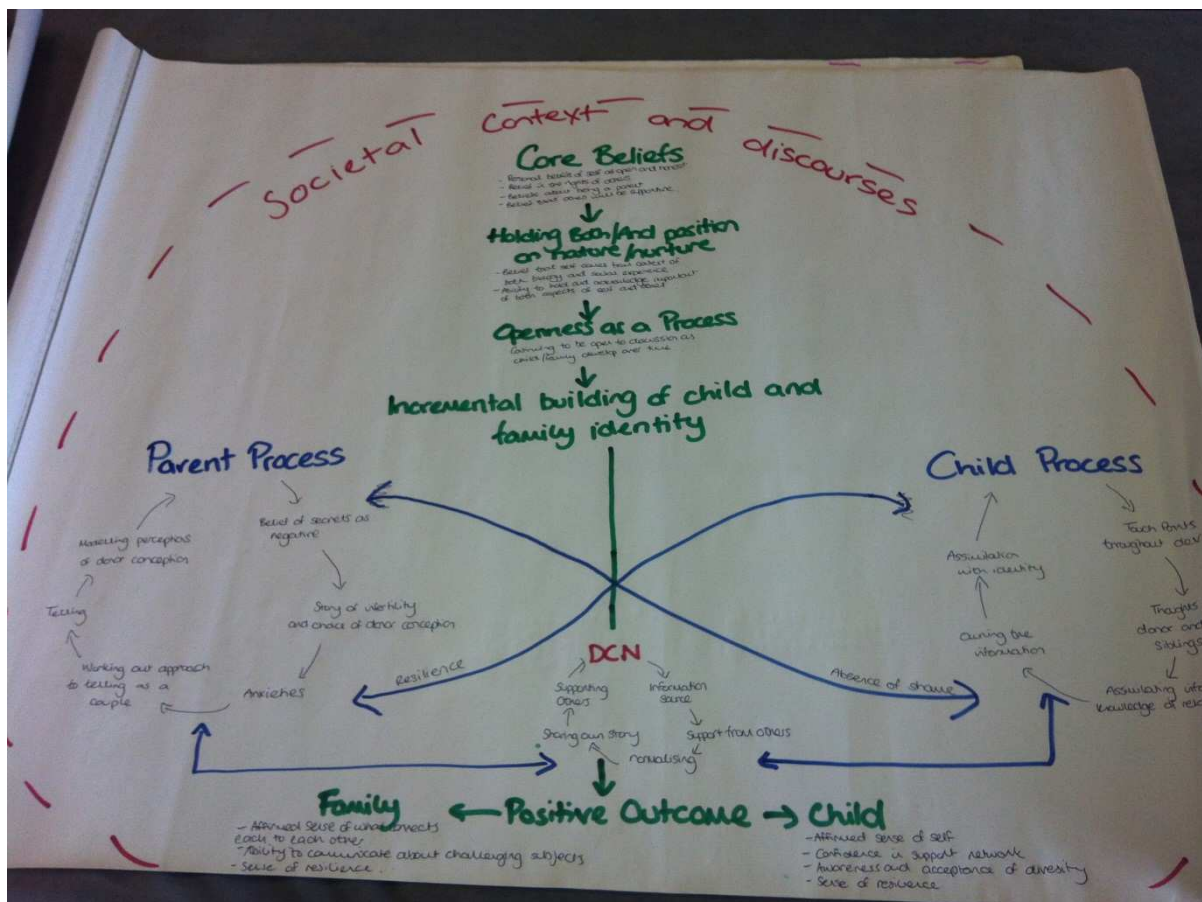 Societal Context and discourses
Core Beliefs
- Personal beliefs of self as open and honest
- Belief in the rights of others
- Beliefs about being a parent
- Belief that others will be supportive
Holding Both/And position
on nature/nurture
- Belief that self comes from aspect of
both biology and social experience
- Ability to hold and acknowledge important
of both aspects of self and
Openness as a Process
Continuing to be open to discussion as
child/family develop over time
Incremental building of child and
family identity
Parent Process
Belief of secrets as
negative
Story of infertility
and choice of donor conception
Anxieties
Working out approach
to telling as a
couple
Telling
Modelling perceptions
of donor conception
Child Process
Touch Points
throughout
Thoughts
donor and
Siblings
Assimilating
knowledge of
Owning the
information
Assimilation
with identity
Resilience
Absence of shame
DCN
Information
source
Support from others
normalising
Sharing own story
Supporting
others
Family ← Positive Outcome → Child
- Affirmed sense of what connects
each to each other
- Ability to communicate about challenging subjects
- Sense of resilience.
- Affirmed sense of self
- Confidence in support network
- Awareness and acceptance of diversity
- Sense of resilience